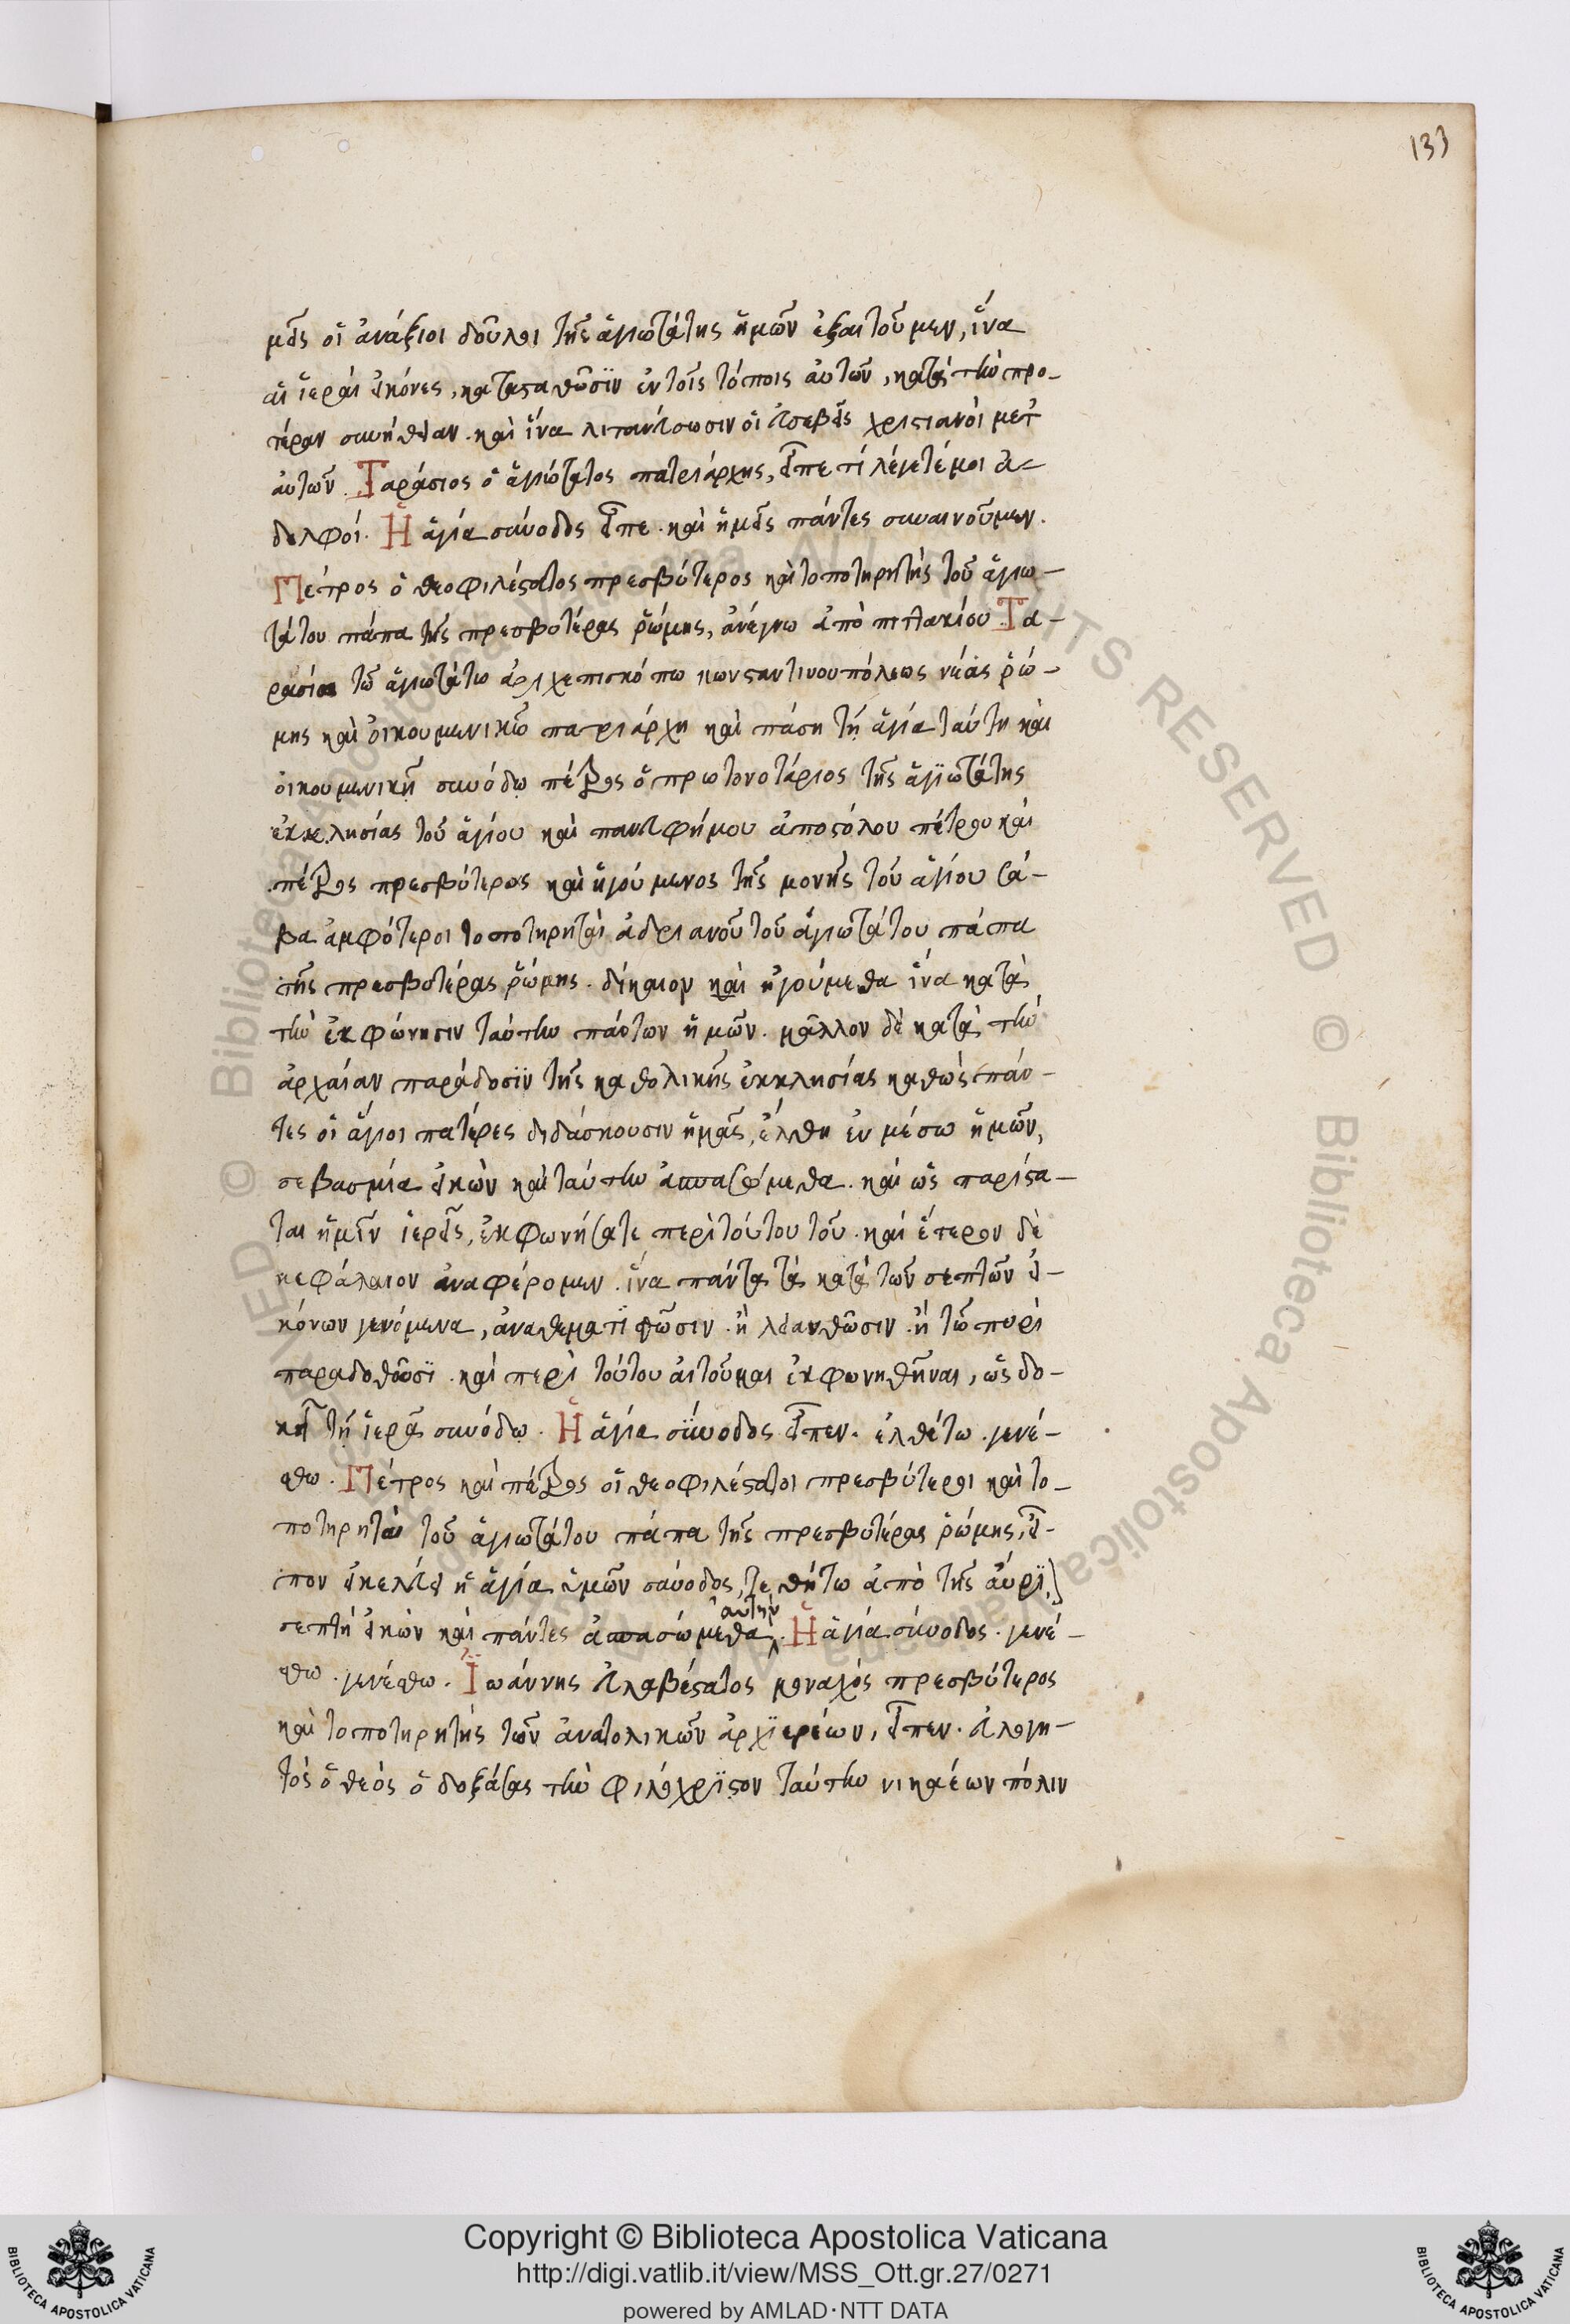 133
μεῖς οἱ ἀνάξιοι δοῦλοι τῆς ἁγιωτάτης ἡμῶν ἐξαιτοῦμεν, ἵνα
αἱ ἱεραὶ εἰκόνες, κατασταθῶσϊν ἐν τοῖς τόποις αὐτῶν, κατὰ τὴν προ-
τέραν συνήθειαν. καὶ ἵνα λιτανεύσωσιν οἱ εὐσεβεῖς χριστιανοὶ μετ'
αὐτῶν. Ταράσιος ὁ ἁγιώτατος πατριάρχης, εἶπε τί λέγετέ μοι ἀ-
δελφοί. Ἡ ἁγία σύνοδος εἶπε. καὶ ἡμεῖς πάντες συναινοῦμεν.
Πέτρος ὁ θεοφιλέστατος πρεσβύτερος καὶ τοποτηρητὴς τοῦ ἁγιω-
τάτου πάπα τῆς πρεσβυτέρας ῥώμης, ἀνέγνω ἀπὸ πιττακίου. Τα-
ρασίω τῶ ἁγιωτάτω ἀρχιεπισκόπω κωνσταντινουπόλεως νέας ῥώ-
μης καὶ οἰκουμενικῶ πατριάρχη καὶ πάση τῆ ἁγία ταύτη καὶ
οἰκουμενικῇ συνόδῳ πέτρος ὁ πρωτονοτάριος τῆς ἁγϊωτάτης
ἐκκλησίας τοῦ ἁγίου καὶ πανευφήμου ἀποστόλου πέτρου καὶ
πέτρος πρεσβύτερος καὶ ἡγούμενος τῆς μονῆς τοῦ ἁγίου σά-
βα ἀμφότεροι τοποτηρηταὶ ἀδριανοῦ τοῦ ἁγιωτάτου πάπα
τῆς πρεσβυτέρας ῥώμης. δίκαιον καὶ ἡγούμεθα ἵνα κατὰ
τὴν ἐκφώνησιν ταύτην πάντων ἡμῶν. μᾶλλον δὲ κατὰ τὴν
ἀρχαίαν παράδοσϊν τῆς καθολικῆς ἐκκλησίας καθὼς πάν-
τες οἱ ἅγιοι πατέρες διδάσκουσιν ἡμᾶς, ἔλθη ἐν μέσω ἡμῶν,
σεβασμία εἰκὼν καὶ ταύτην ἀσπασώμεθα. καὶ ὡς παρίστα-
ται ἡμῖν ἱερεῖς, ἐκφωνήσατε περὶ τούτου τοῦ. καὶ ἕτερον δὲ
κεφάλαιον ἀναφέρομεν. ἵνα πάντα τὰ κατὰ τῶν σεπτῶν εἰ-
κόνων γενόμενα, ἀναθεματϊσθῶσιν. ἢ λεανθῶσιν. ἢ τῶ πυρὶ
παραδοθῶσϊ. καὶ περὶ τούτου αἰτοῦμαι ἐκφωνηθῆναι, ὡς δο-
κεῖ τῆ ἱερᾶ συνόδῳ. Ἡ ἁγία σύνοδος εἶπεν. ἐλθέτω. γενέ-
σθω. Πέτρος καὶ πέτρος οἱ θεοφιλέστατοι πρεσβύτεροι καὶ το-
ποτηρηταὶ τοῦ ἁγιωτάτου πάπα τῆς πρεσβυτέρας ῥώμης, εἶ-
πον εἰ κελεύει ἡ ἁγία ὑμῶν σύνοδος, τεθήτω ἀπὸ τῆς αὔρϊ,
σεπτὴ εἰκὼν καὶ πάντες ἀσπασώμεθα αὐτήν. Ἡ ἁγία σύνοδος. γενέ-
σθω. γενέσθω. Ἰωάννης εὐλαβέστατος μοναχὸς πρεσβύτερος
καὶ τοποτηρητὴς τῶν ἀνατολικῶν ἀρχϊερέων, εἶπεν. εὐλογη-
τὸς ὁ θεὸς ὁ δοξάσας τὴν φιλόχρϊστον ταύτην νικαέων πόλιν
Copyright © Biblioteca Apostolica Vaticana
http://digi.vatlib.it/view/MSS_Ott.gr.27/0271
powered by AMLAD·NTT DATA